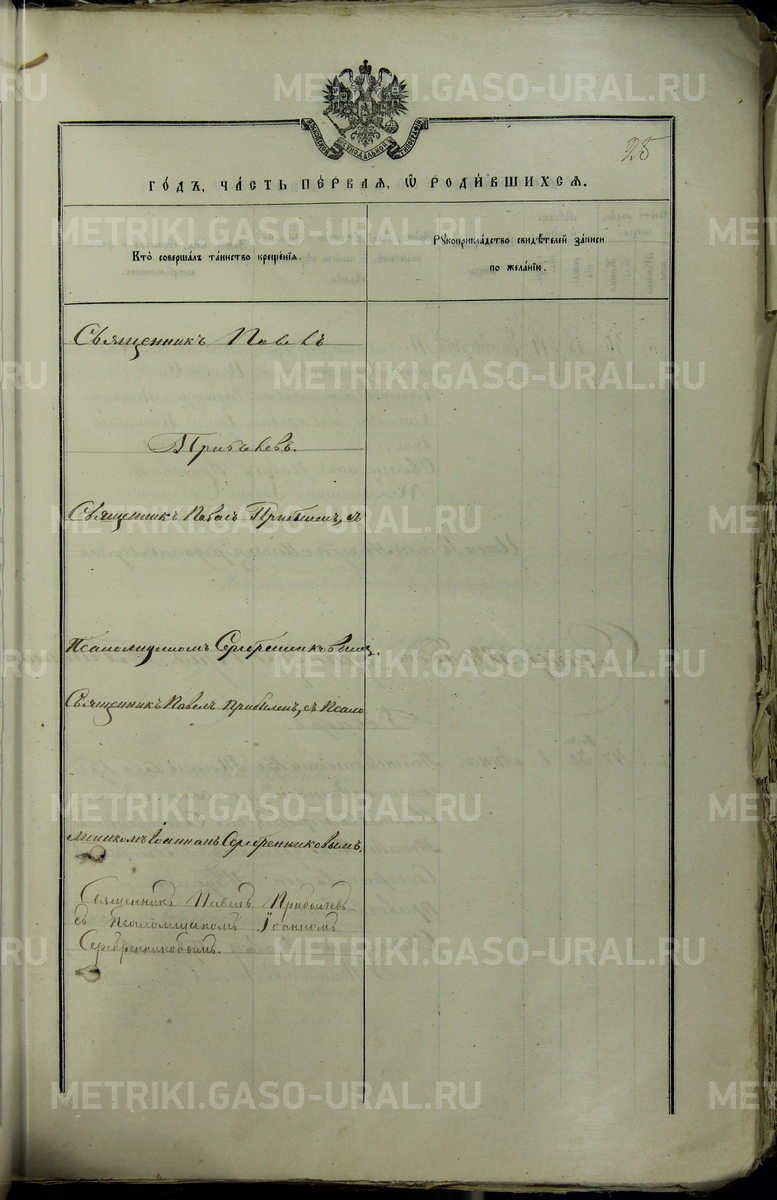 28
Го́дъ, ча́сть пе́рваѧ, ѽ роди́вшихсѧ.
Кто̀ соверша́лъ та́инство креще́нїѧ.
Рꙋкоприкла́дство свидѣ́телей за́писи
по жела́нїю.
Священникъ Павелъ
Прибылевъ.
Священникъ Павелъ Прибылевъ, съ
Псаломщикомъ Серебренниковымъ.
Священникъ Павелъ Прибылевъ, съ Псало
мщикомъ Іоанномъ Серебренниковымъ.
Священникъ Павелъ Прибылевъ
съ Псаломщикомъ Іоанномъ
Серебренниковымъ.
METRIKI.GASO-URAL.RU